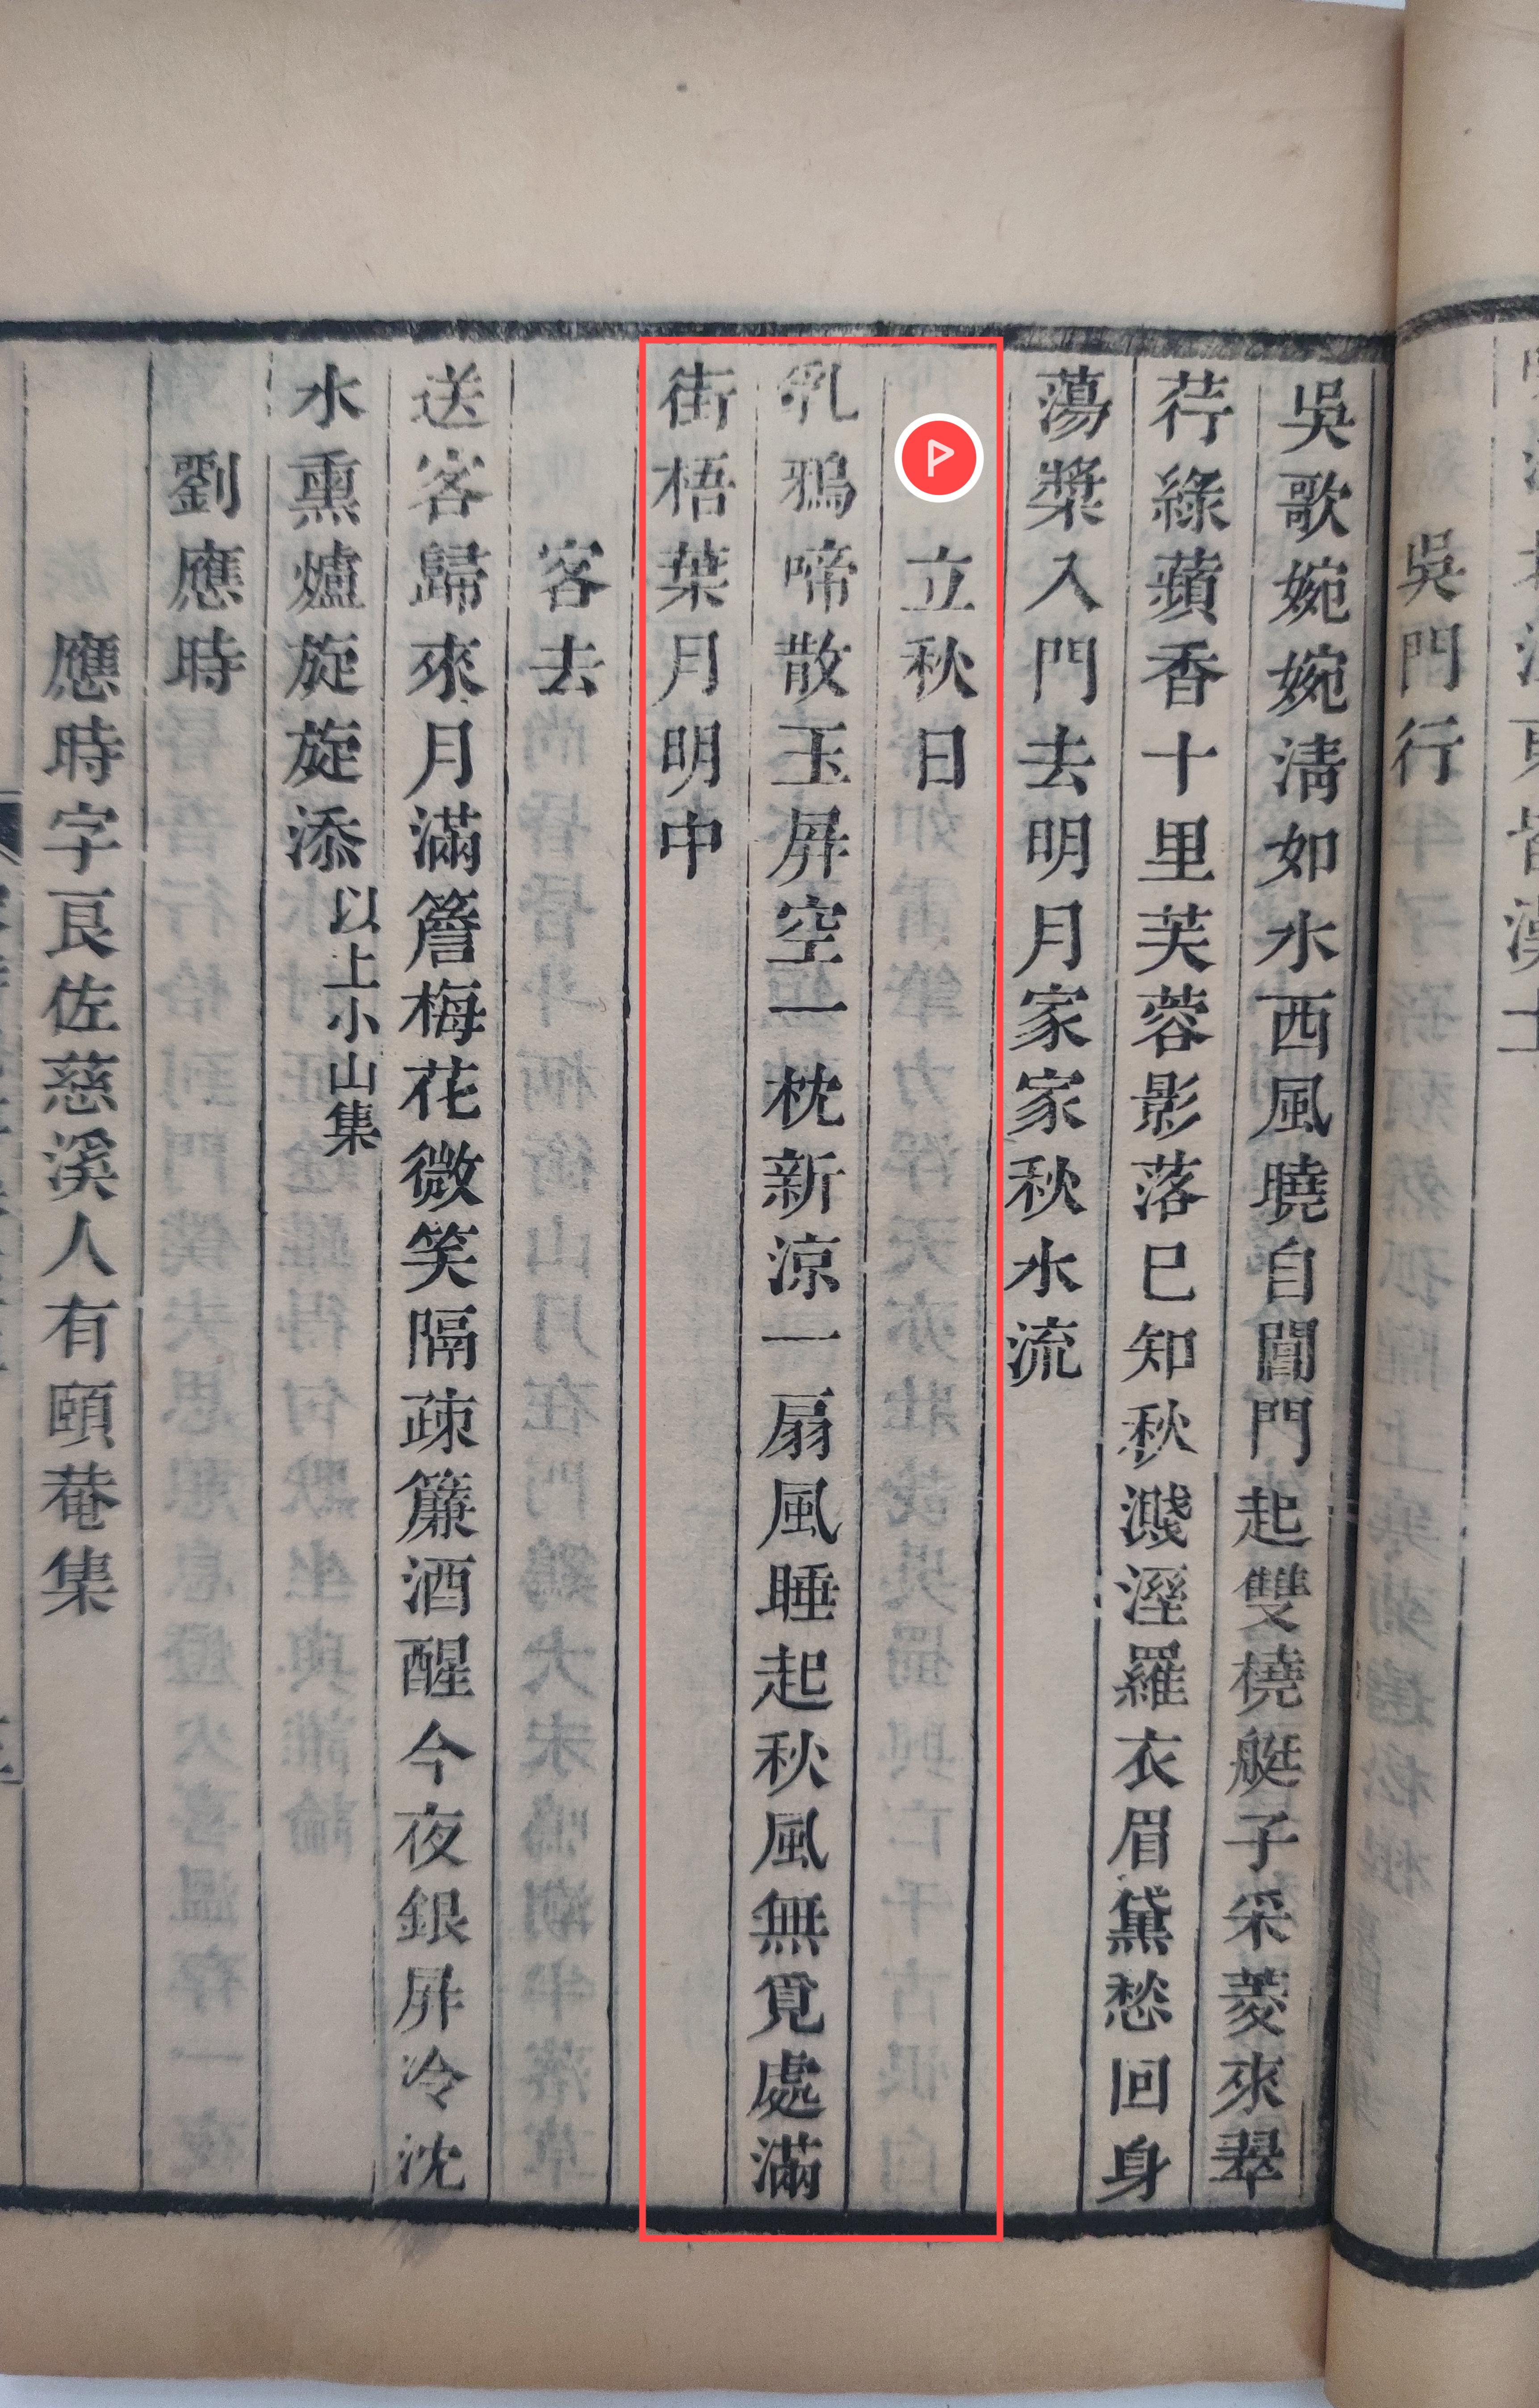 吳門行
吳歌婉婉淸如水西風曉自閶門起雙橈艇子采菱來翠
荇綠蘋香十里芙蓉影落巳知秋濺溼羅衣眉黛愁回身
蕩槳入門去明月家家秋水流
立秋日
乳鴉啼散玉屛空一枕新涼一扇風睡起秋風無覓處滿
街梧葉月明中
客去
送客歸來月滿簷梅花微笑隔疎簾酒醒今夜銀屛冷沈
水熏爐旋旋添以上小山集
劉應時
應時字良佐慈溪人有頤菴集